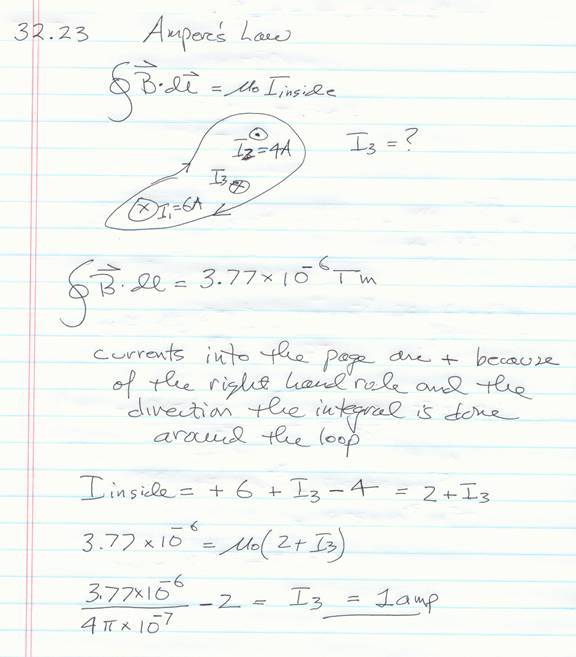 32.23 Ampere's Law
∮B⃗·dl⃗ = μ₀ I inside
I2=4A
I3 = ?
I3
I1=6A
∮B⃗·dl = 3.77×10⁻⁶ Tm
currents into the page are + because
of the right hand rule and the
direction the integral is done
around the loop
I inside = + 6 + I3 - 4 = 2 + I3
3.77 × 10⁻⁶ = μ₀(2+I3)
3.77×10⁻⁶ / 4π×10⁻⁷ - 2 = I3 = 1 amp